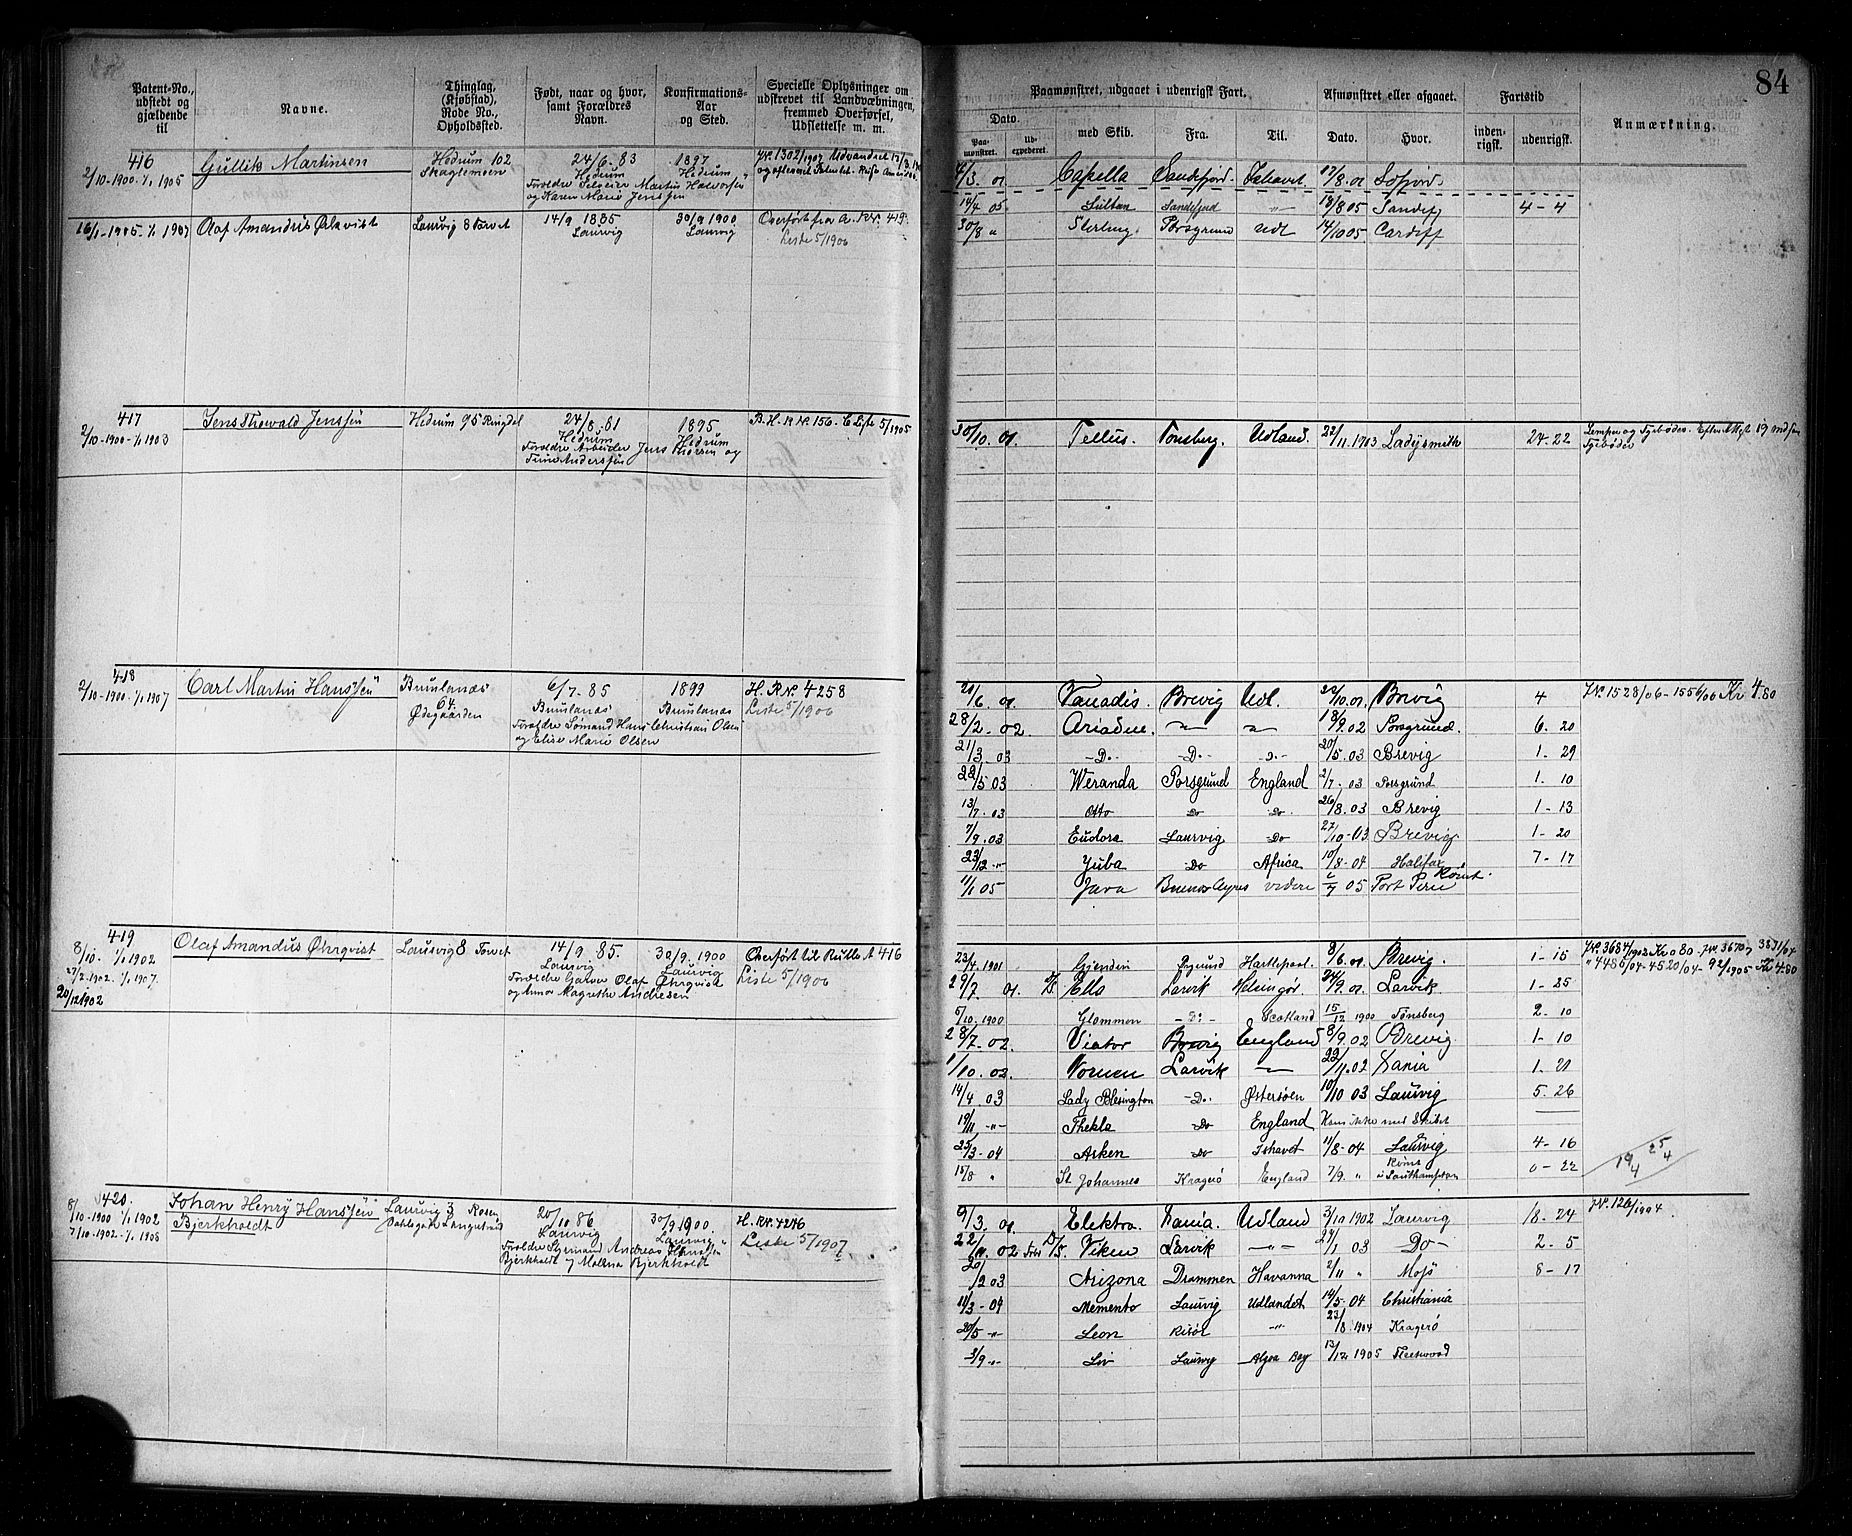 84
Patent-No., udstedt og gjældende til
Navne.
Thinglag, (Kjøbstad), Rode No., Opholdssted.
Født, naar og hvor, samt Forældres Navn.
Konfirmations-Aar og Sted.
Specielle Oplysninger om udskrevet til Landvæbningen, fremmed Overførsel, Udslettelse m. m.
Paamønstret, udgaaet i udenrigsk Fart.
Dato.
Paa-mønstret.
Ud-expederet.
med Skib.
Fra.
Til.
Afmønstret eller afgaaet.
Dato.
Hvor.
Fartstid
inden-rigsk.
udenrigsk.
Anmærkning.
416
2/10-1900-1/1 1905
Gullik Martinsen
Hedrum 102
24/6-83
Hedrum
1897
Hedrum
JNo. 1302/1907 Udvandret
Forældre Selveier Martin Halvorsen
og Karen Marie Jenssen
16/1-1905-1/1 1907
Olaf Amandus
Laurvig 8 Torvet
14/9 1885
Laurvig
30/9 1900
Laurvig
Overført fra A. RNr. 419
Liste 5/1906
4/3. 01 Capella Sandefjord Ishavet 17/8.01
14/4 05 Sultan Sandefjord 18/8 05 Sandefj 4-4
30/8 " Sterling Porsgrund Udl 14/10 05 Cardiff
417
2/10-1900-1/1 1903
Jens Thorvald Jenssen
Hedrum 95 Ringdal
24/8.81
Hedrum
1895
Hedrum
B. H. R Nr. 156. E Liste 5/1905
Forældre Arbeider Jens Thorsen og
Andersen
30/10. 01. Tellus. Tønsberg. Udland. 22/11.1903 Ladysmith 24-22
Lemper og Fyrbøder. Efter Attest 19 mdser
Fyrbøder
418
2/10-1900.-1/1 1907
Carl Martin Hanssen
Brunlanæs
64.
Ødegaarden
6/7-85
Brunlanæs
1899
Brunlanæs
H. RNo. 4258
Liste 5/1906
Forældre Sømand Hans Christian Olsen
og Elise Marie Olsen
20/6. 01. Vanadis. Brevig Udl. 22/10.01. Brevig 4
JNo. 1528/06-1556/06 Kr 4.80
28/2. 02. Ariadne. 18/9.02 Porsgrund. 6. 20
21/3. 03 -Do.- -Do.- 20/5.03 Brevig 1-29
22/5 03 Weranda Porsgrund England 2/7.03 Porsgrund 1. 10
13/7.03 Otto Do Do. 26/8.03 Brevig 1-13
7/9.03 Eudora Laurvig Do 27/10-03 Brevig 1-20
23/12 " Yuba Do Africa 10/8-04 Halifax 7-17
11/1 05 Java Buenos Ayres videre 05 Port Pirie Rømt.
419
8/10. 1/1 1902
27/2.1902. 1/1 1907.
20/12 1902
Olaf Amandus Øhrqvist
Laurvig 8 Torvet
14/9. 85.
Laurvig
30/9. 1900
Laurvig
Overført til Rulle A 416
Liste 5/1906
Forældre Garver Olaf Øhrqvist
og Anna Magrethe Andresen
23/4.1901 Gjendin Hartlepool. 8/6.01. Brevig. 1-15
27/7. 01. D/S. Ella Larvik Helsingør. 24/9.01. Larvik 1-25
5/10. 1900 Glommen -Do- Scotland 15/12 1900 Tønsberg 2-10
28/7-02. Viator Brevig England 8/9.02 Brevig 1-10
1/10. 02. Vormen Larvik 22/11.02 Xania 1.21
14/4.03 Lady Blesington -Do- Østersøen 10/10 03 Laurvig 5.26
19/11 -"- Thekla Do England Kom ikke med Skibet
25/3-04 Asken Do Ishavet 11/8-04 Laurvig 4-16
15/8 " St Johannes Kragerø England 7/9. " Rømt i Southampton 0-22
420.
8/10-1900 1/1 1902
7/10-1902.-1/1-1908
Johan Henry Hanssen
Bjerkholdt
Laurvig 3
20/10 86
Laurvig
30/9 1900.
Laurvig
H. RNo. 4276
Liste 5/1907
Forældre Styrmand Andreas Hanssen
Bjerkholdt og Mathea Bjerkholdt
9/3. 01. Elektra. Xania. Udland 3/10 1902 Laurvig 18-24
JNo. 126/1904.
22/11. 02 D/S. Viken Larvik -"- 27/1 03 Do- 2-5
20/2 03 Arizona Drammen Havanna 2/11 " Mosjö 8-17
11/3-04 Memento Laurvig Udlandet 14/5-04 Christiania
20/5 -"- Leon Risör -"- 23/8 1904 Kragerö
3/9 -"- Liv Laurvig Algoa Bay 13/12 1905 Fleetwood